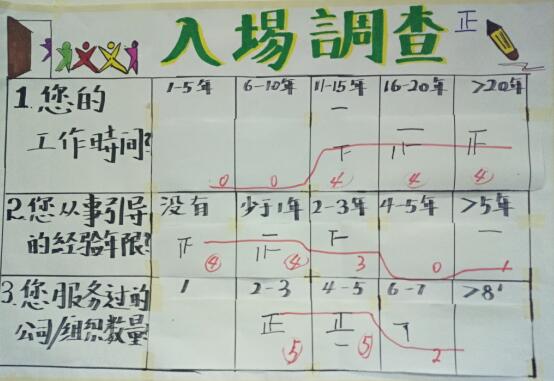 入場調查 正
1-5年 6-10年 11-15年 16-20年 >20年
1.您的
工作時间?
0 0 4 4 4
2.您从事引导 没有 少于1年 2-3年 4-5年 >5年
的经验年限?
4 4 3 0 1
3.您服务过的 1 2-3 4-5 6-7 >8
公司/组织数量
5 5 2